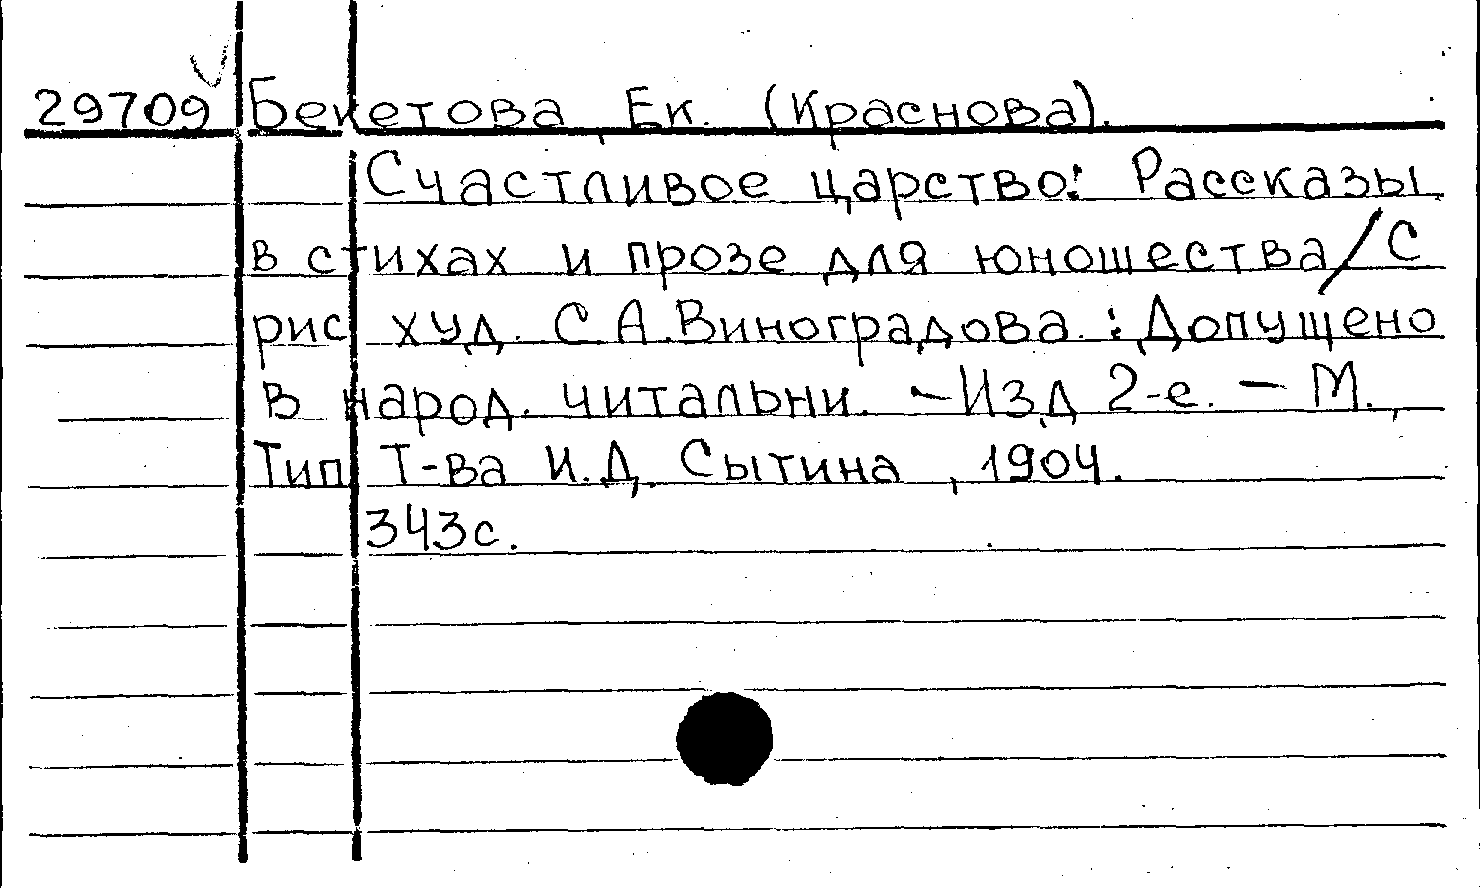 29709 Бекетова, Ек. (Краснова).
Счастливое царство: Рассказы
в стихах и прозе для юношества / С
рис. худ. С.А.Виноградова. : Допущено
в народ. читальни. - Изд 2-е. - М.,
Тип. Т-ва И.Д. Сытина, 1904.
343с.